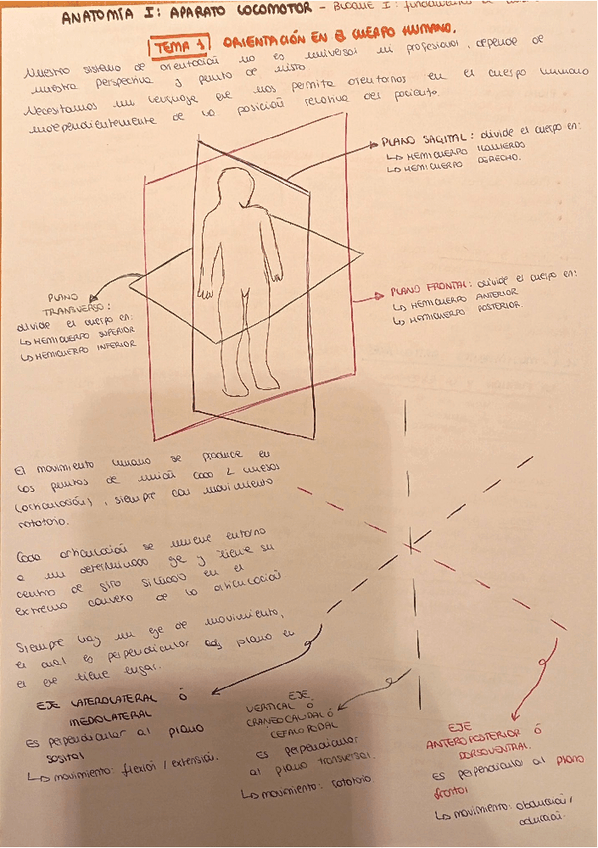 ANATOMÍA I: APARATO LOCOMOTOR - BLOQUE I:
TEMA 1 ORIENTACIÓN EN EL CUERPO HUMANO.
Nuestro sistema de orientación no es universal ni profesional, depende de
nuestra perspectiva y punto de vista
Necesitamos un lenguaje que nos permita orientarnos en el cuerpo humano
independientemente de la posición relativa del paciente.
PLANO SAGITAL: divide el cuerpo en:
↳ HEMICUERPO IZQUIERDO
↳ HEMICUERPO DERECHO.
PLANO
TRANSVERSO:
divide el cuerpo en:
↳ HEMICUERPO SUPERIOR
↳ HEMICUERPO INFERIOR
PLANO FRONTAL: divide el cuerpo en:
↳ HEMICUERPO ANTERIOR
↳ HEMICUERPO POSTERIOR.
El movimiento humano se produce en
los puntos de unión cada 2 huesos
(articulación), siempre con movimiento
rotatorio.
Cada articulación se mueve entorno
a un determinado eje y tiene su
centro de giro situado en el
extremo convexo de la articulación
Siempre hay un eje de movimiento,
el cual es perpendicular al plano en
el que tiene lugar.
EJE LATEROLATERAL ó
MEDIOLATERAL
Es perpendicular al plano
sagital
↳ movimiento: flexión / extensión.
EJE
VERTICAL ó
CRANEOCAUDAL ó
CEFALOPODAL
Es perpendicular
al plano transversal.
↳ movimiento: rotatorio.
EJE
ANTEROPOSTERIOR ó
DORSOVENTRAL.
Es perpendicular al plano
frontal
↳ movimiento: abducción /
aducción.